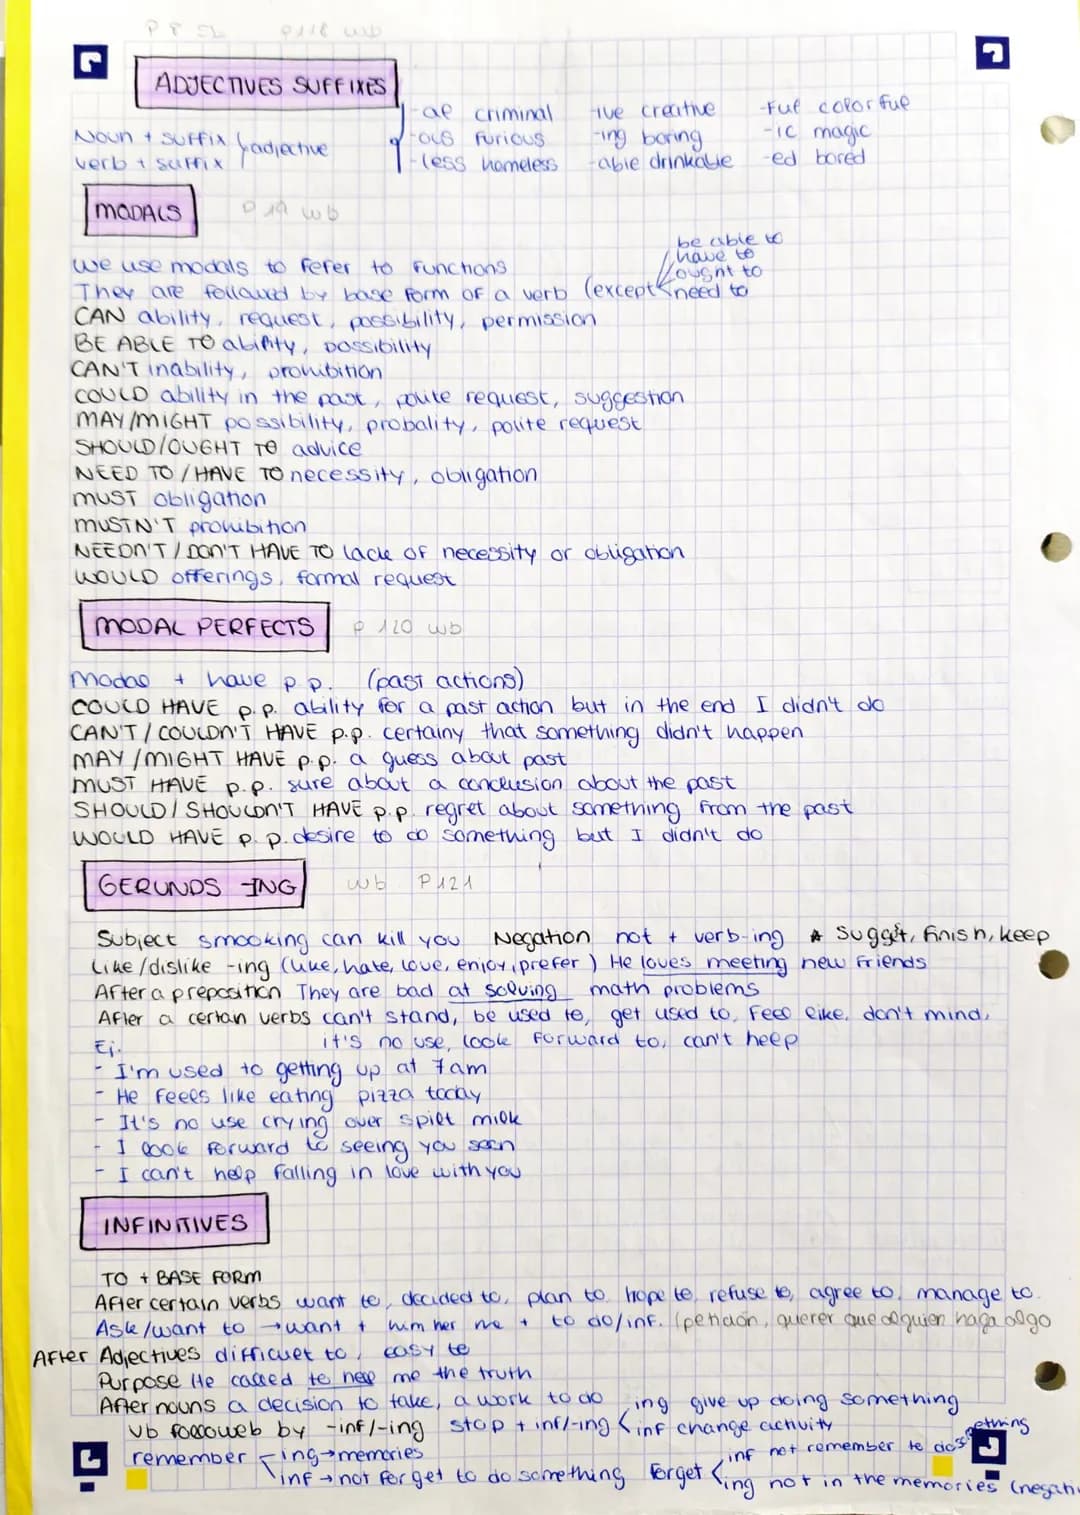 P 8 SL P118 wb
ADJECTIVES SUFFIXES
-al criminal -ive creative -Ful colorful
Noun + suffix adjective -ous furious -ing boring -ic magic
verb + suffix -less homeless -able drinkable -ed bored
MODALS P 19 wb
be able to
have to
We use modals to refer to functions ought to
They are followed by base form of a verb (except need to
CAN ability, request, possibility, permission
BE ABLE TO ability, possibility
CAN'T inability, prohibition
COULD ability in the past, polite request, suggestion
MAY/MIGHT possibility, probality, polite request
SHOULD/OUGHT TO advice
NEED TO / HAVE TO necessity, obligation
MUST obligation
MUSTN'T prohibition
NEEDN'T / DON'T HAVE TO lack of necessity or obligation
WOULD offerings, formal request
MODAL PERFECTS P 120 wb
Modal + have p.p. (past actions)
COULD HAVE p.p. ability for a past action but in the end I didn't do
CAN'T / COULDN'T HAVE p.p. certainy that something didn't happen
MAY / MIGHT HAVE p.p. a guess about past
MUST HAVE p.p. sure about a conclusion about the past
SHOULD / SHOULDN'T HAVE p.p. regret about something from the past
WOULD HAVE p.p. desire to do something but I didn't do
GERUNDS -ING wb P121
Subject smooking can kill you Negation not + verb-ing * Sugget, finish, keep
Like/dislike -ing (like, hate, love, enjoy, prefer) He loves meeting new friends
After a preposition They are bad at solving math problems
After a certan verbs can't stand, be used to, get used to, feel like, don't mind,
Ej. it's no use, look forward to, can't heep
- I'm used to getting up at 7am
- He feels like eating pizza today
- It's no use crying over spilt milk
- I look forward to seeing you soon
- I can't help falling in love with you
INFINITIVES
TO + BASE FORM
After certain verbs want to, decided to, plan to, hope to, refuse to, agree to, manage to.
Ask/want to → want + him her me + to do/inf. (petición, querer que alguien haga algo
After Adjectives difficult to, easy to
Purpose He called to help me the truth
After nouns a decision to take, a work to do ing give up doing something
Vb followeb by -inf/-ing stop + inf/-ing inf change activity
remember ing → memories inf not remember to do something
inf → not forget to do something Forget ing not in the memories (negati